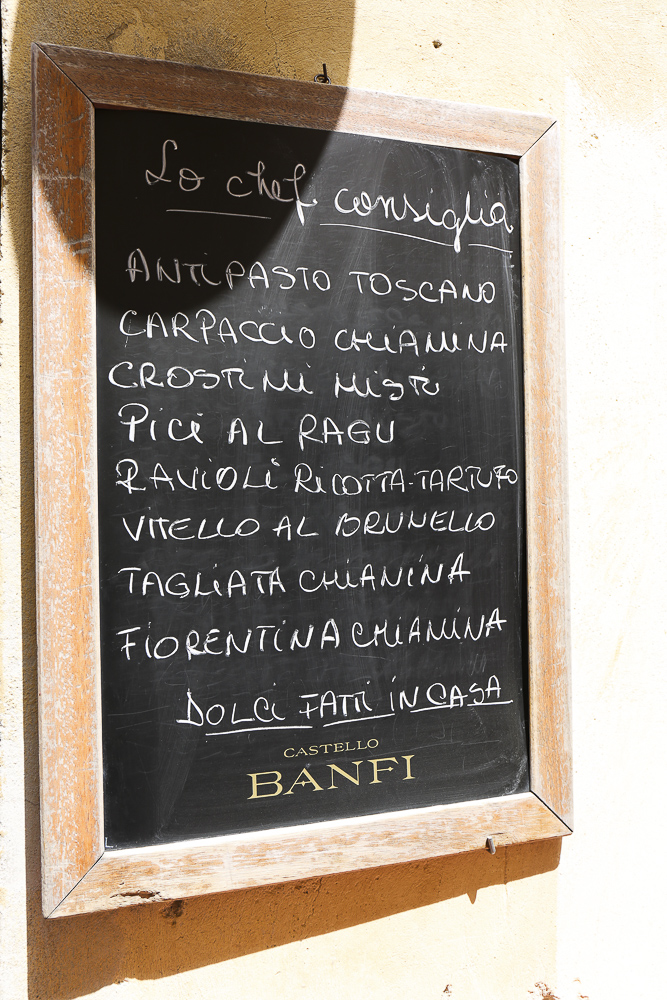 Lo chef consiglia
ANTIPASTO TOSCANO
CARPACCIO CHIANINA
CROSTINI MISTI
PICI AL RAGU
RAVIOLI RICOTTA-TARTUFO
VITELLO AL BRUNELLO
TAGLIATA CHIANINA
FIORENTINA CHIANINA
DOLCI FATTI IN CASA
CASTELLO
BANFI